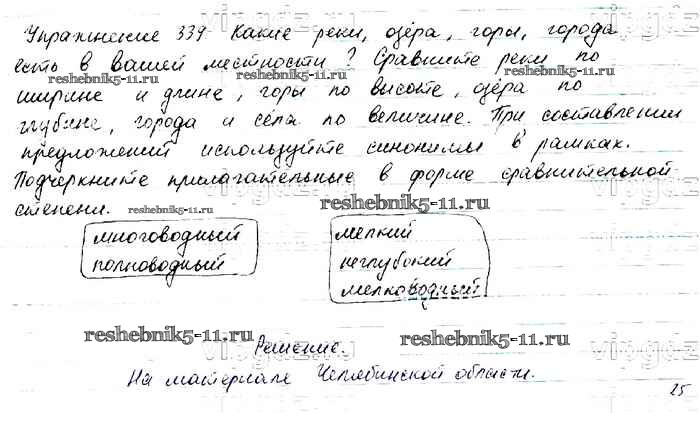 Упражнение 339. Какие реки, озёра, горы, города
есть в вашей местности? Сравните реки по
reshebnik5-11.ru
reshebnik5-11.ru
ширине и длине, горы по высоте, озёра по
глубине, города и сёла по величине. При составлении
предложений используйте синонимы в рамках.
Подчеркните прилагательные в форме сравнительной
степени.
reshebnik5-11.ru
reshebnik5-11.ru
многоводный
полноводный
мелкий
неглубокий
мелководный
reshebnik5-11.ru
reshebnik5-11.ru
Решение.
На материале Челябинской области.
25